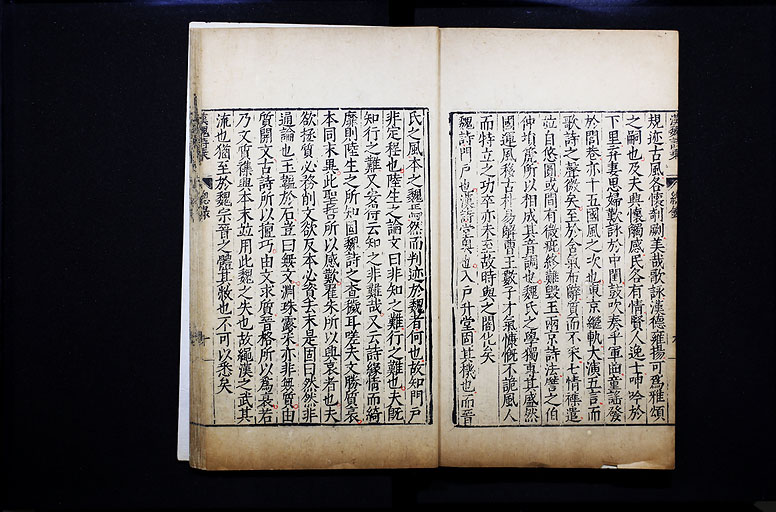 漢魏詩集
總錄
規迹古風各懷剞劂美哉歌詠漢德雍揚可爲雅頌
之嗣也及夫興懷觸感民各有情賢人逸士呻吟於
下里弃妻思婦歎詠於中閨鼓吹奏乎軍曲童謠發
於閭巷亦十五國風之次也東京繼軌大演五言而
歌詩之聲微矣至於含氣布辭質而不采七情雜遣
竝自悠圓或間有微疵終難毀玉兩京詩法譬之伯
仲塤篪所以相成其音調也魏氏之學獨專其盛然
國運風移古朴易解曹王數子才氣慷慨不詭風人
而特立之功卒亦未至故時與之闇化矣
魏詩門戶也漢詩堂奧也入戶升堂固其機也而晉
氏之風本之魏焉然而判迹於魏者何也故知門戶
非定程也陸生之論文曰非知之難行之難也夫既
知行之難又安得云知之非難哉又云詩緣情而綺
靡則陸生之所知固魏詩之查穢耳嗟夫文勝質衰
本同末異此聖哲所以感歎翟朱所以興哀者也夫
欲拯質必務削文欲反本必資去末是固曰然然非
通論也玉韞於石豈曰無文淵珠露采亦非無質由
質開文古詩所以擅巧由文求質晉格所以爲衰若
乃文質雜興本末竝用此魏之失也故繩漢之武其
流也猶至於魏宗晉之體其敝也不可以悉矣
漢魏詩集
總錄